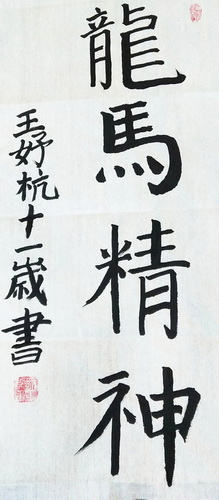 龍馬精神
王妤杭十一歲書